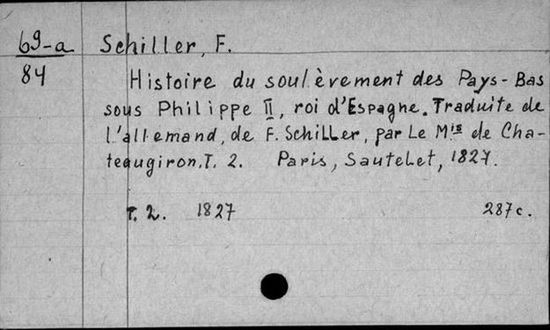 69-a Schiller, F.
84
Histoire du soulèvement des Pays-Bas
sous Philippe II, roi d'Espagne. Traduite de
l'allemand, de F. Schiller, par Le Mis de Cha-
teaugiron. T. 2. Paris, Sautelet, 1827.
T. 2. 1827 287c.